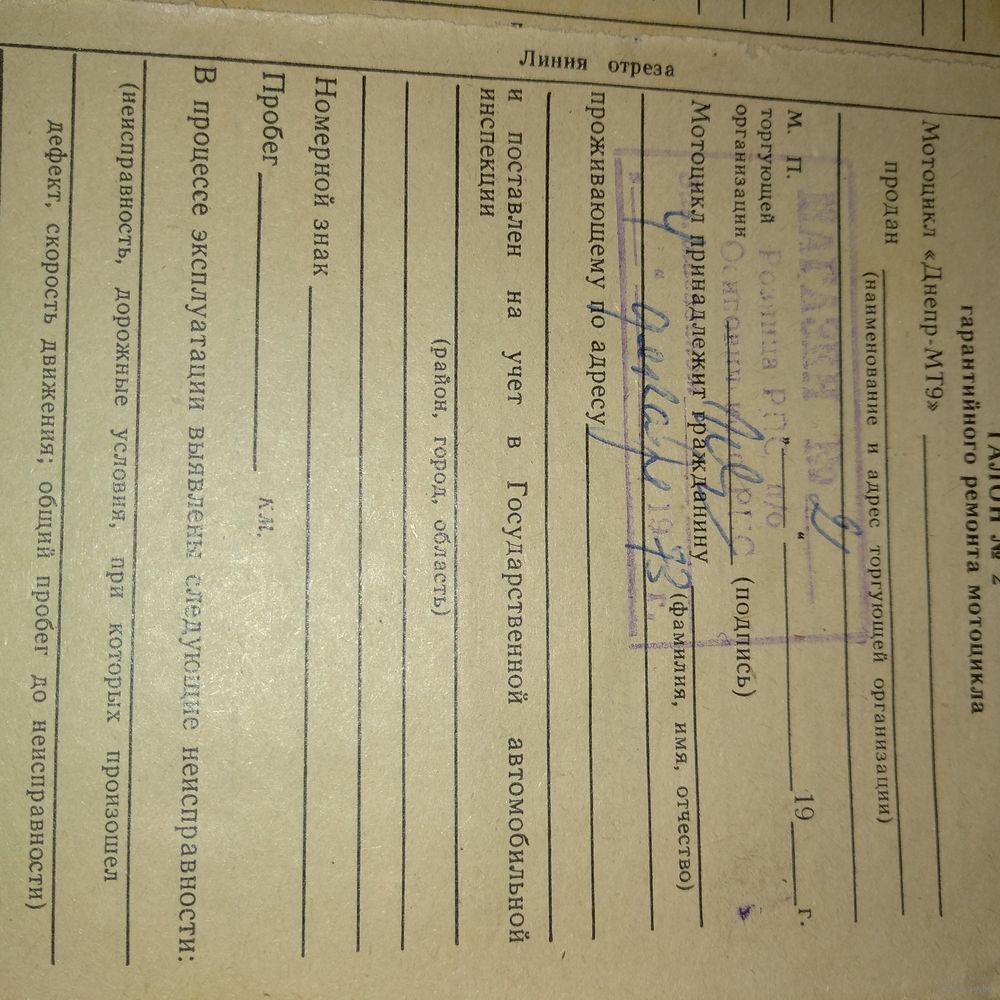 Линия отреза
ТАЛОН № 2
гарантийного ремонта мотоцикла
Мотоцикл «Днепр-МТ9»
продан
(наименование и адрес торгующей организации)
МАГАЗИН № 2
М. П. „ “ 19 г.
торгующей
организации (подпись)
Мотоцикл принадлежит гражданину
(фамилия, имя, отчество)
9 января 1973 г.
проживающему по адресу
и поставлен на учет в Государственной автомобильной
инспекции
(район, город, область)
Номерной знак
Пробег км.
В процессе эксплуатации выявлены следующие неисправности:
(неисправность, дорожные условия, при которых произошел
дефект, скорость движения; общий пробег до неисправности)